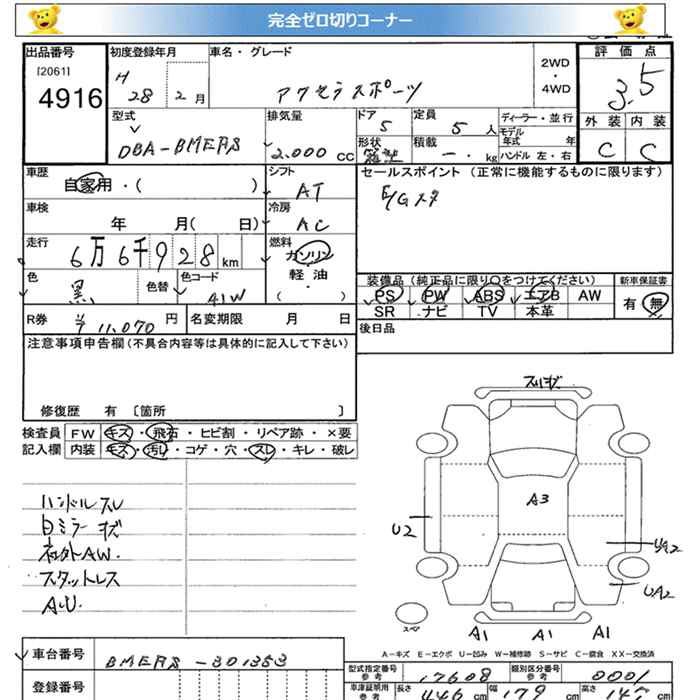 完全ゼロ切りコーナー
出品番号
[2061]
4916
初度登録年月
H 28 2 月
車名・グレード
アクセラスポーツ
2WD
・
4WD
評価点
3.5
外装 内装
C C
型式
DBA-BMEFS
排気量
2.000 cc
ドア
5
定員
5 人
形状
積載
-. kg
ディーラー・並行
モデル
年式 年
ハンドル 左・右
車歴
自家用・( )
シフト
AT
セールスポイント (正常に機能するものに限ります)
E/Gスタ
車検
年 月( 日)
冷房
AC
走行
6万6千928 km
燃料
ガソリン
軽・油
( )
色
黒
色替
色コード
41W
装備品 (純正品に限り〇をつけてください)
PS PW ABS エアB AW
SR ナビ TV 本革
新車保証書
有 ・ 無
R券 ¥ 11,070 円
名変期限 月 日
後日品
注意事項申告欄(不具合内容等は具体的に記入して下さい)
修復歴 有 〔箇所 〕
検査員 FW キズ・飛石・ヒビ割・リペア跡・×要
記入欄 内装 キズ・汚れ・コゲ・穴・スレ・キレ・破レ
ハンドルスレ
白ミラーキズ
社外AW.
スタットレス
A.U.
スリキズ
A3
U2
UA2
UA2
スペア
A1 A1 A1
A-キズ E-エクボ U-凹み W-補修跡 S-サビ C-腐食 XX-交換済
車台番号
BMEFS-301353
登録番号
型式指定番号
参考
17608
類別区分番号
参考
0001
車庫証明用
参考
長さ
446 cm
幅
179 cm
高さ
147 cm